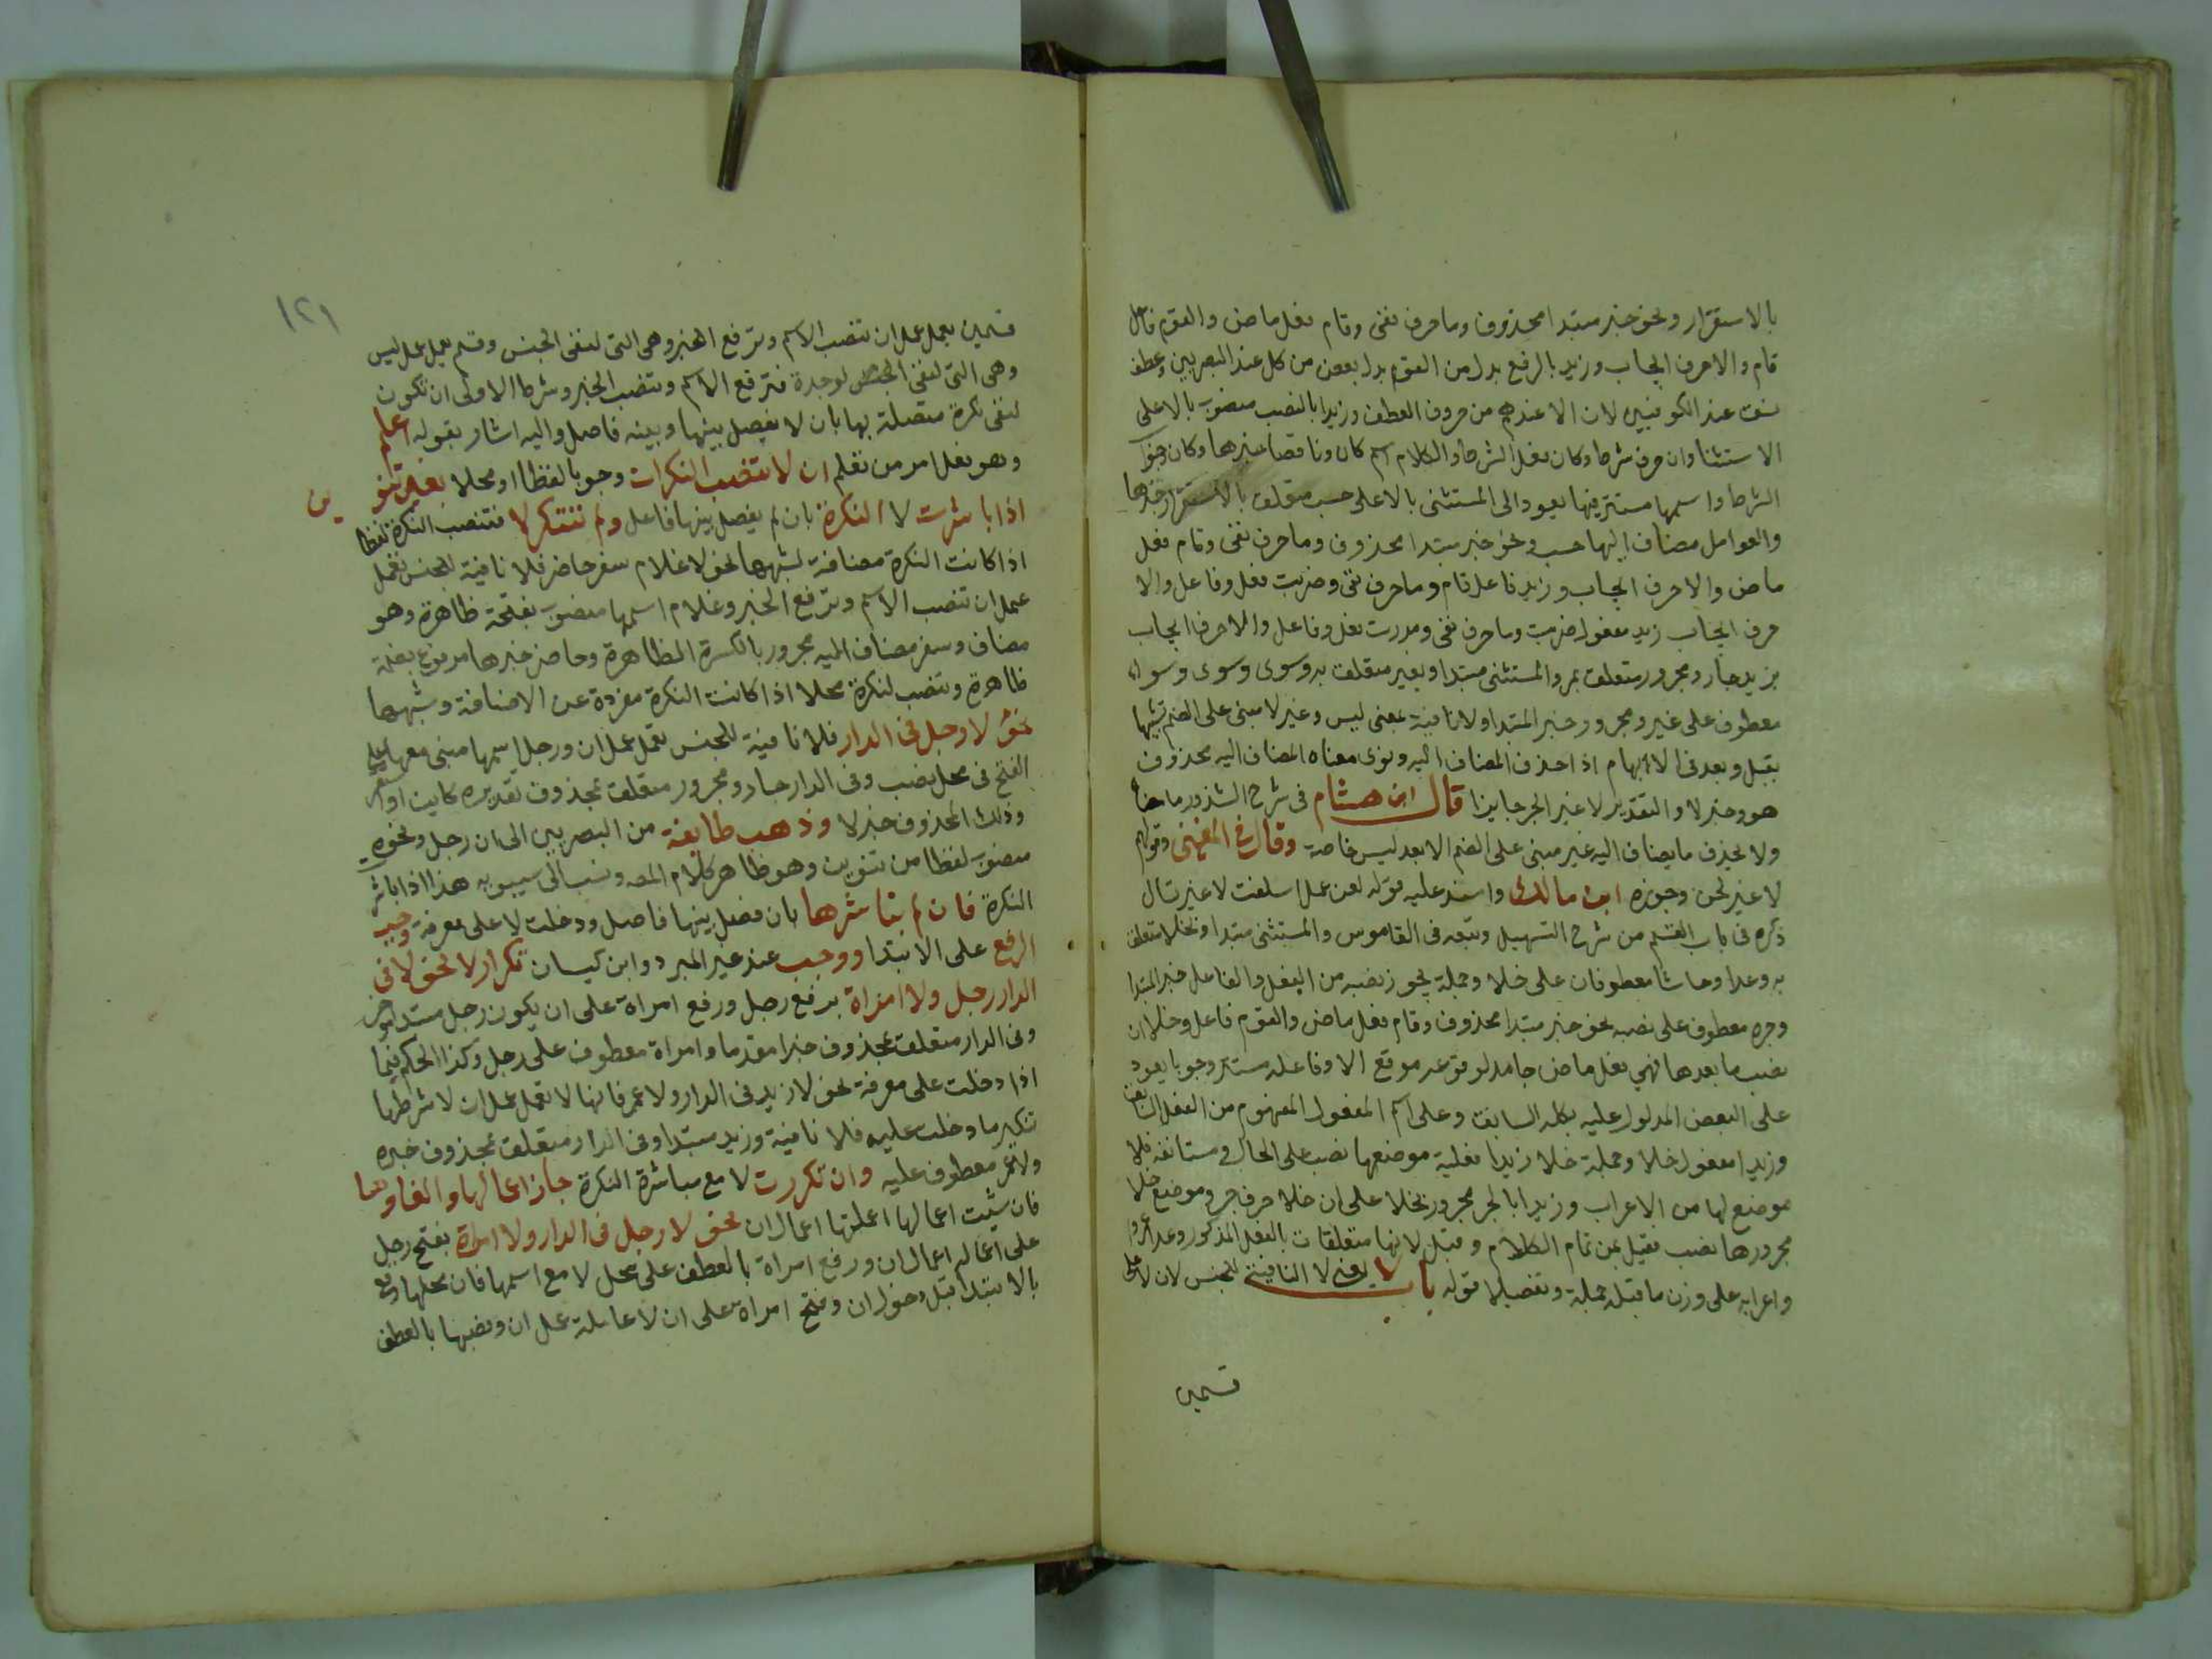 بالاستقرار ونحو خبر مبتدا محذوف وما حرف نفى وقام فعل ماض والقوم فاعل
قام والا حرف ايجاب وزيد بالرفع بدل من القوم بدل بعض من كل عند البصريين وعطف
نسق عند الكوفيين لان الا عندهم من حروف العطف وزيدا بالنصب منصوب بالا على
الاستثنا وان حرف شرط وكان فعل الشرط والكلام اسم كان وناقصا خبرها وكان
الشرط واسمها مستتر فيها يعود الى المستثنى بالا على حسب متعلق بالاستقرار خبرها
والعوامل مضاف اليها حسب ونحو خبر مبتدا محذوف وما حرف نفى وقام فعل
ماض والا حرف ايجاب وزيد فاعل قام وما حرف نفى وضربت فعل وفاعل والا
حرف ايجاب زيد مفعول ضربت وما حرف نفى ومررت فعل وفاعل والا حرف ايجاب
بزيد جار ومجرور متعلق بمر والمستثنى مبتدا وبغير متعلق به وسوى وسوى وسواء
معطوف على غير ومجرور خبر المبتدا ولا نافية بمعنى ليس وغير لا مبنى على الضم تشبيها
بقبل وبعد فى الابهام اذا حذف المضاف اليه ونوى معناه المضاف اليه محذوف
هو وخبر لا والتقدير لا غير الجر جايزا قال ابن هشام فى شرح الشذور ما
ولا يحذف ما يضاف اليه غير مبنى على الضم الا بعد ليس خاصة وقال فى المغنى وقولهم
لا غير لحن وجوزه ابن مالك وانشد عليه قوله لعن عمل اسلفت لا غير تسال
ذكره فى باب القسم من شرح التسهيل وتبعه فى القاموس والمستثنى مبتدا وبخلا متعلق
به وعدا وحاشا معطوفان على خلا وجملة يجوز نصبه من الفعل والفاعل خبر المبتدا
وجره معطوف على نصبه نحو خبر مبتدا محذوف وقام فعل ماض والقوم فاعل وخلا ان
نصب ما بعدها فهي فعل ماض جامد لوقوعه موقع الا وفاعله مستتر وجوبا يعود
على البعض المدلول عليه بكله السابق وعلى اسم المفعول المفهوم من الفعل السابق
وزيدا مفعول خلا وجملة خلا زيدا فعلية موضعها نصب على الحال او مستانفة فلا
موضع لها من الاعراب وزيدا بالجر مجرور بخلا على ان خلا حرف جر وموضع خلا
مجرورها نصب فقيل عن تمام الكلام وقيل لانها متعلقات بالفعل المذكور وعدا عمروا
واعرابه على وزن ما قبله جملة وتفصيلا قوله باب لا يعنى لا النافية للجنس لان لا على
قسمين
١٢١
قسمين يعمل عمل ان تنصب الاسم وترفع الخبر وهى التى لنفى الجنس وقسم يعمل عمل ليس
وهى التى لنفى الجنس لوحدة فترفع الاسم وتنصب الخبر وشرط الاولى ان تكون
لنفى نكرة متصلة بها بان لا يفصل بينها وبينه فاصل واليه اشار بقوله اعلم
وهو فعل امر من تعلم ان لا تنصب النكرات وجوبا لفظا او محلا بغير تنوين
اذا باشرت لا النكرة بان لم يفصل بينها فاعل ولم تتكر لا فتنصب النكرة لفظا
اذا كانت النكرة مضافة لشبهها نحو لا غلام سفر حاضر فلا نافية للجنس تعمل
عمل ان تنصب الاسم وترفع الخبر وغلام اسمها منصوب بفتحة ظاهرة وهو
مضاف وسفر مضاف اليه مجرور بالكسرة الظاهرة وحاضر خبرها مرفوع بضمة
ظاهرة وتنصب لنكرة محلا اذا كانت النكرة مفردة عن الاضافة وشبهها
نحو لا رجل فى الدار فلا نافية للجنس تعمل عمل ان ورجل اسمها مبنى معها على
الفتح فى محل نصب وفى الدار جار ومجرور متعلق بمحذوف تقديره كاين او استقر
وذلك المحذوف خبر لا وذهب طايفة من البصريين الى ان رجل ونحوه
منصوب لفظا من تنوين وهو ظاهر كلام المص ونسب الى سيبويه هذا اذا باشر
النكرة فان لم تباشرها بان فصل بينها فاصل ودخلت لا على معرفة وجب
الرفع على الابتدا ووجب عند غير المبرد وابن كيسان تكرار لا نحو لا فى
الدار رجل ولا امراة برفع رجل ورفع امراة على ان يكون رجل مبتدا موخر
وفى الدار متعلق بمحذوف خبرا مقدما وامراة معطوف على رجل وكذا الحكم فيما
اذا دخلت على معرفة نحو لا زيد فى الدار ولا عمر فانها لا تعمل عمل ان لا شرطها
تنكير ما دخلت عليه فلا نافية وزيد مبتدا وفى الدار متعلق بمحذوف خبره
ولا عمر معطوف عليه وان تكررت لا مع مباشرة النكرة جاز اعمالها والغاوها
فان شيت اعمالها اعملتها اعمال ان نحو لا رجل فى الدار ولا امراة بفتح رجل
على اعماله اعمال ان ورفع امراة بالعطف على محل لا مع اسمها فان محلها رفع
بالابتدا قبل دخول ان وفتح امراة على ان لا عاملة عمل ان ونصبها بالعطف